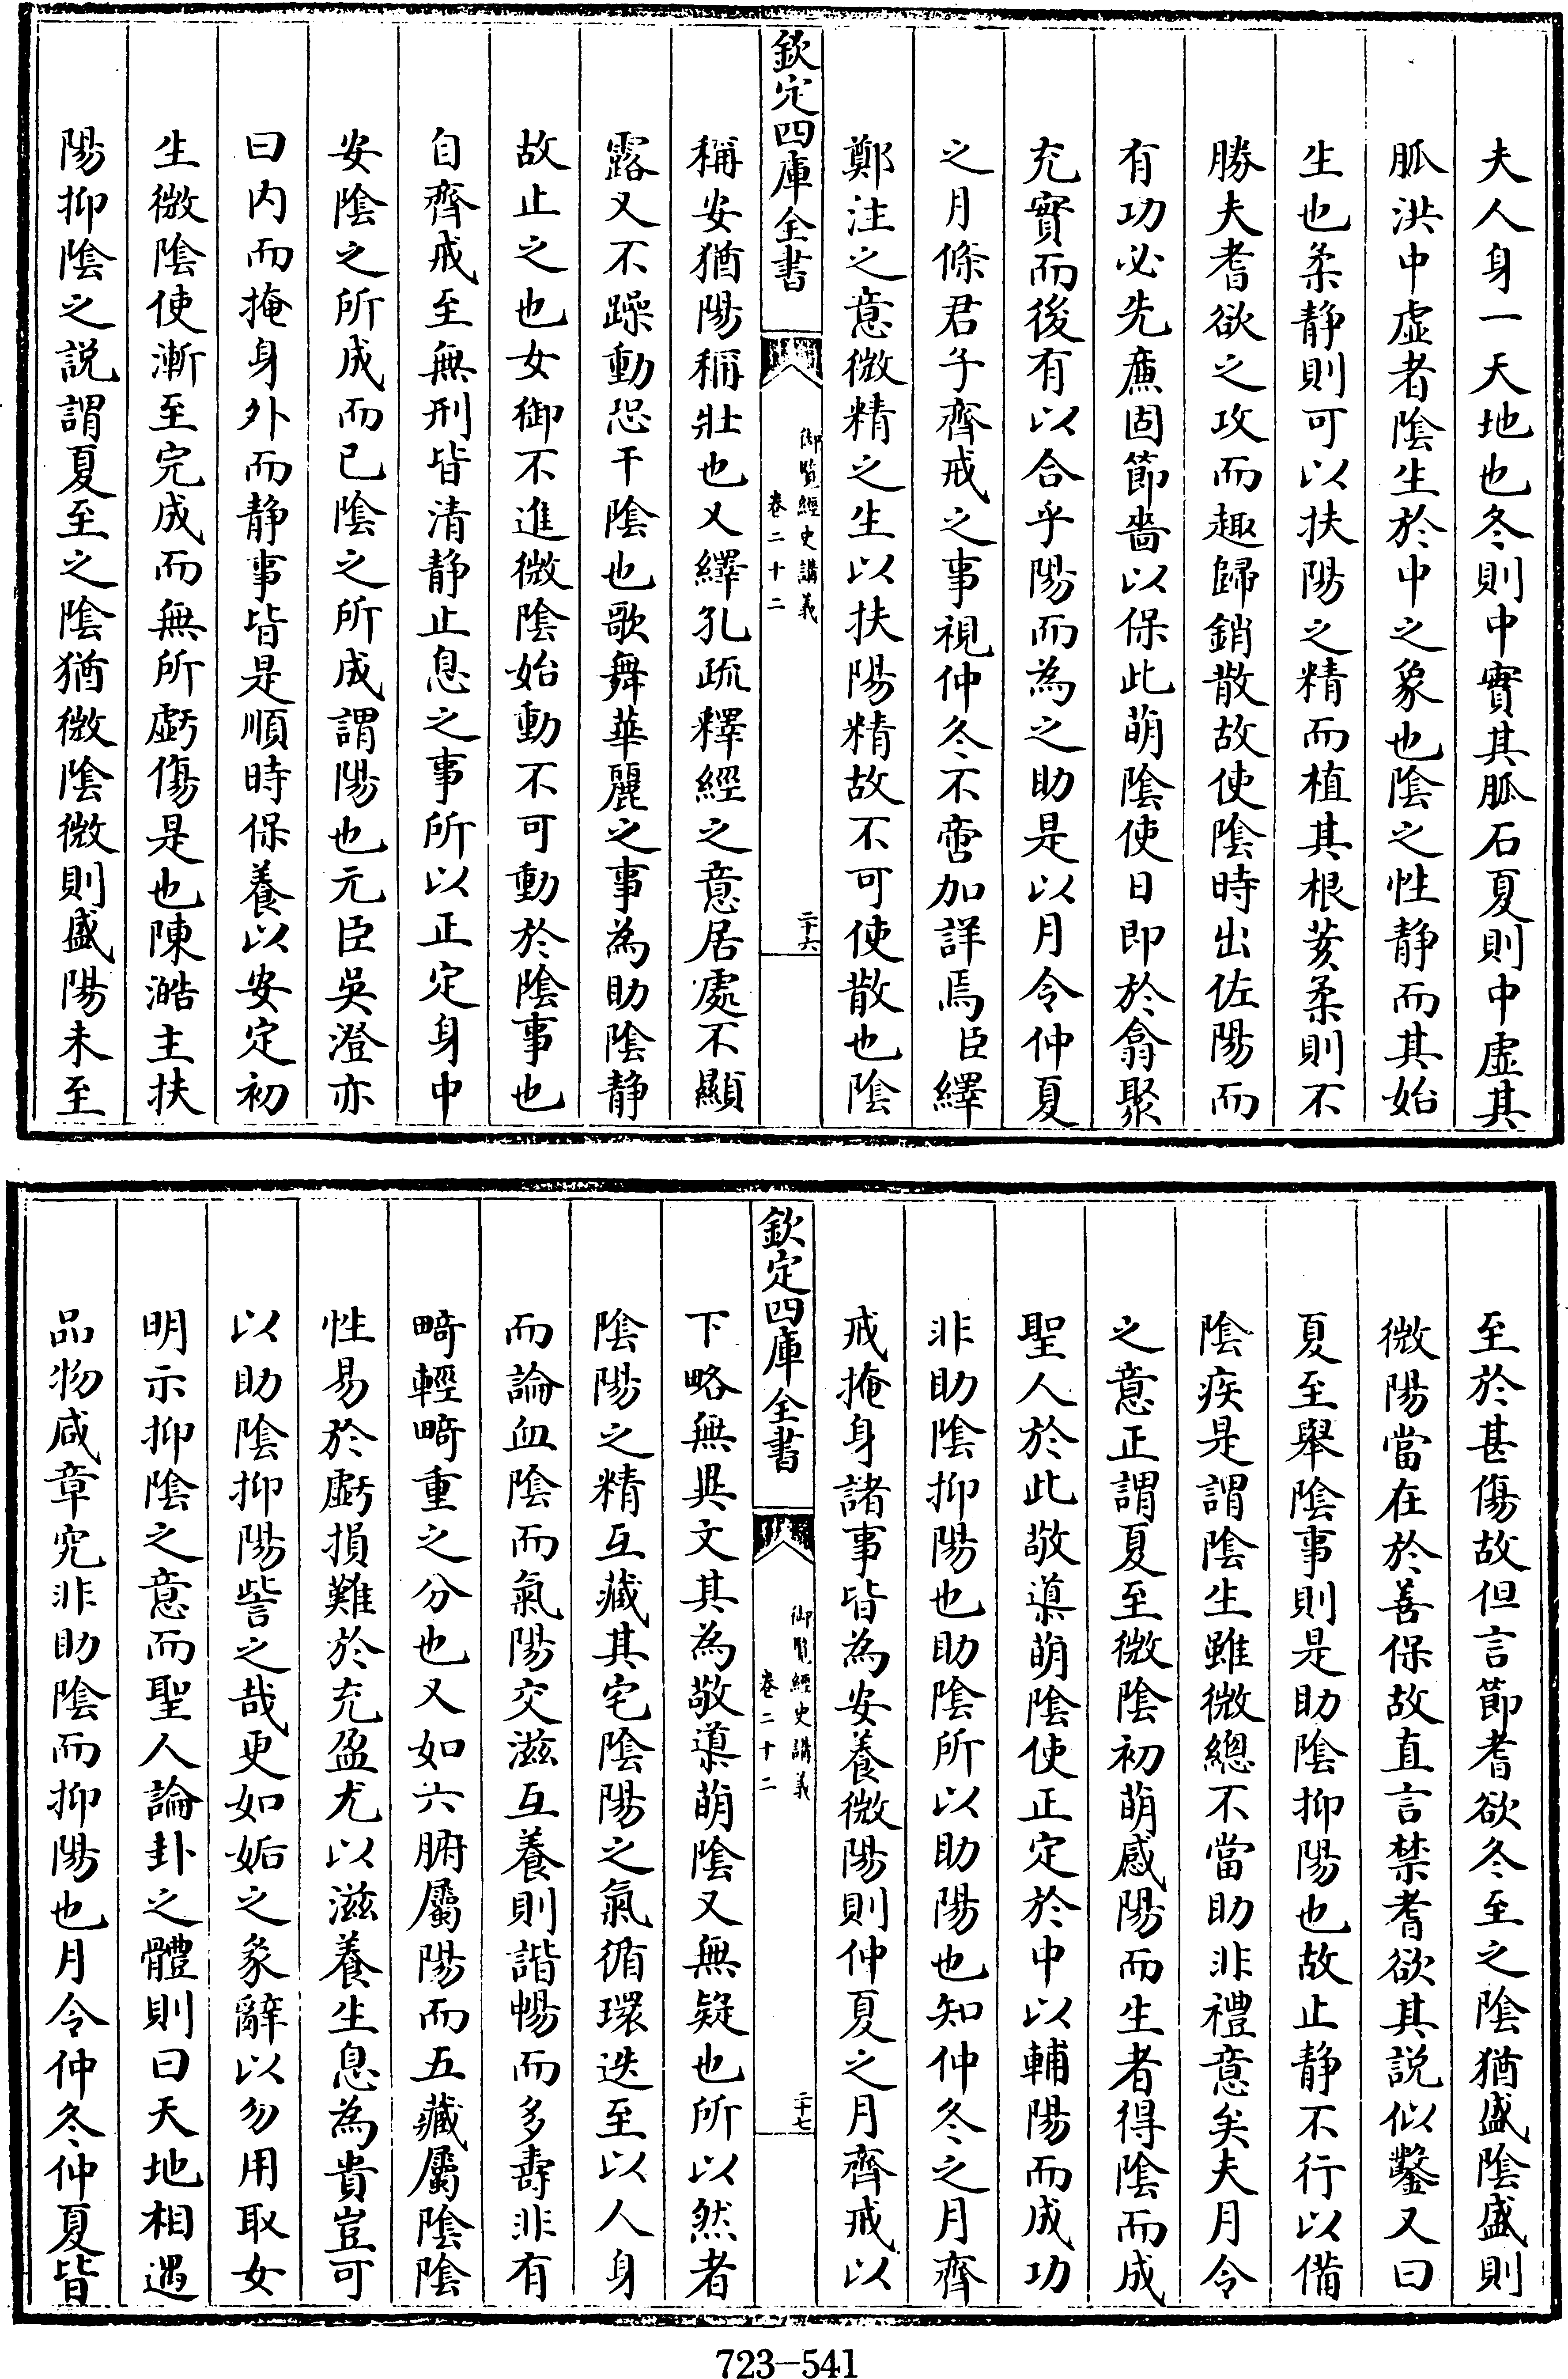 夫人身一天地也冬則中實其脈石夏則中虛其
脈洪中虛者陰生於中之象也陰之性静而其始
生也柔静則可以扶陽之精而植其根荄柔則不
勝夫耆欲之攻而趣歸銷散故使陰時出佐陽而
有功必先廉固節嗇以保此萌陰使日即於翕聚
充實而後有以合乎陽而為之助是以月令仲夏
之月條君子齊戒之事視仲冬不啻加詳焉臣繹
鄭注之意微精之生以扶陽精故不可使散也陰
欽定四庫全書
御覽經史講義
卷二十二
二十六
稱安猶陽稱壯也又繹孔疏釋經之意居處不顯
露又不躁動恐干陰也歌舞華麗之事為助陰静
故止之也女御不進微陰始動不可動於陰事也
自齊戒至無刑皆清静止息之事所以正定身中
安陰之所成而已陰之所成謂陽也元臣吳澄亦
曰内而掩身外而静事皆是順時保養以安定初
生微陰使漸至完成而無所虧傷是也陳澔主扶
陽抑陰之説謂夏至之陰猶微陰微則盛陽未至
至於甚傷故但言節耆欲冬至之陰猶盛陰盛則
微陽當在於善保故直言禁耆欲其説似鑿又曰
夏至舉陰事則是助陰抑陽也故止静不行以備
陰疾是謂陰生雖微總不當助非禮意矣夫月令
之意正謂夏至微陰初萌感陽而生者得陰而成
聖人於此敬導萌陰使正定於中以輔陽而成功
非助陰抑陽也助陰所以助陽也知仲冬之月齊
戒掩身諸事皆為安養微陽則仲夏之月齊戒以
欽定四庫全書
御覽經史講義
卷二十二
二十七
下略無異文其為敬導萌陰又無疑也所以然者
陰陽之精互藏其宅陰陽之氣循環迭至以人身
而論血陰而氣陽交滋互養則諧暢而多壽非有
畸輕畸重之分也又如六腑屬陽而五藏屬陰陰
性易於虧損難於充盈尤以滋養生息為貴豈可
以助陰抑陽訾之哉更如姤之彖辭以勿用取女
明示抑陰之意而聖人論卦之體則曰天地相遇
品物咸章究非助陰而抑陽也月令仲冬仲夏皆
723-541